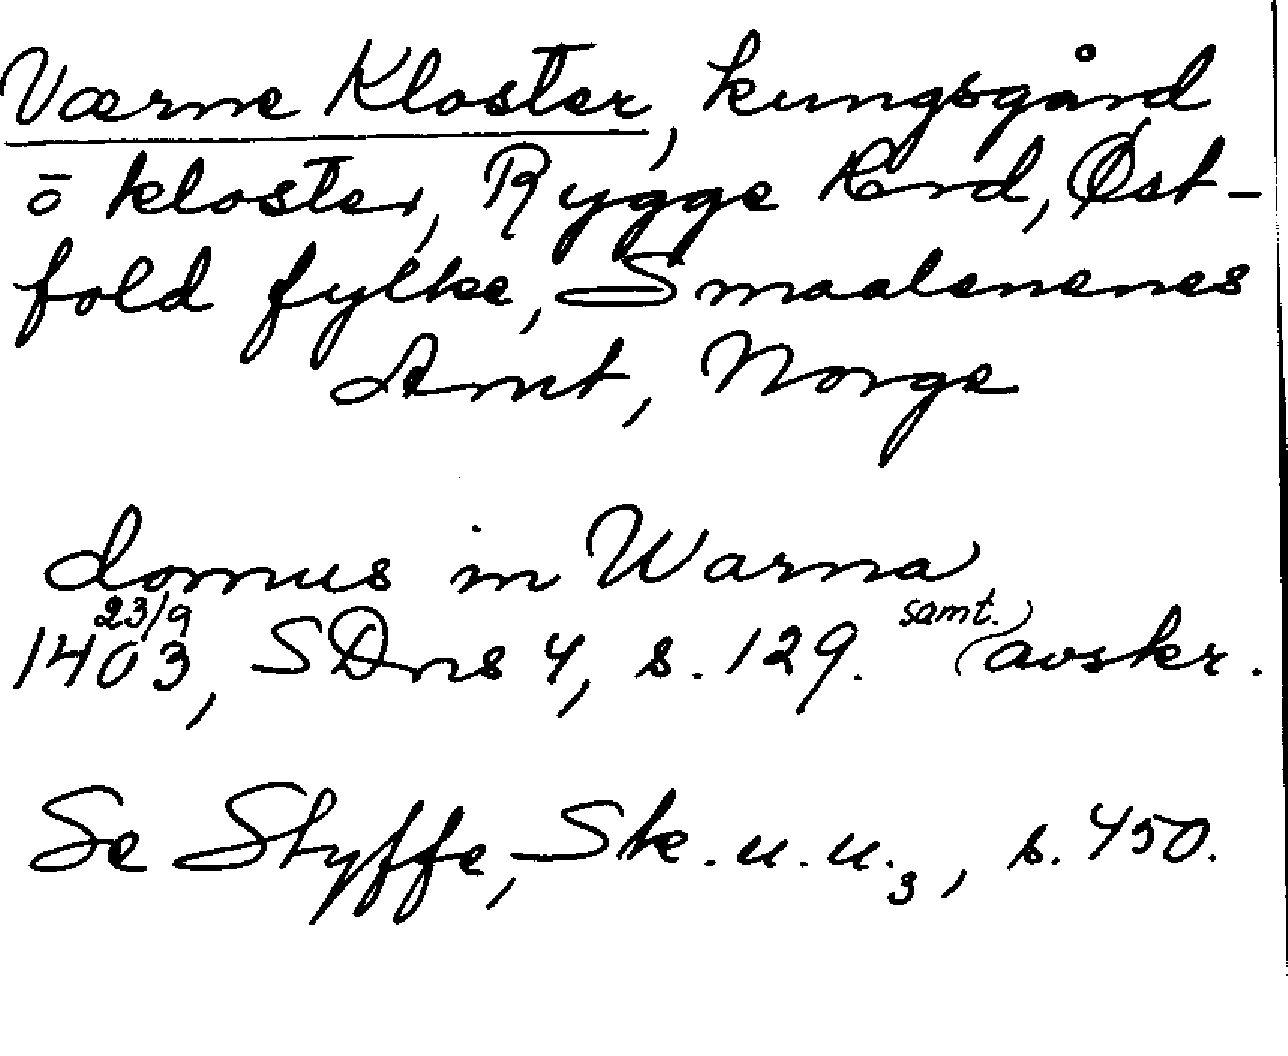 Værne Kloster, kungsgård
ō kloster, Rygge hrd, Øst-
fold fylke, Smaalenenes
Amt, Norge
domus in Warna
1403 23/9, SDns 4, s. 129. (samt. avskr.)
Se Styffe, Sk. u. u. 3, s. 450.